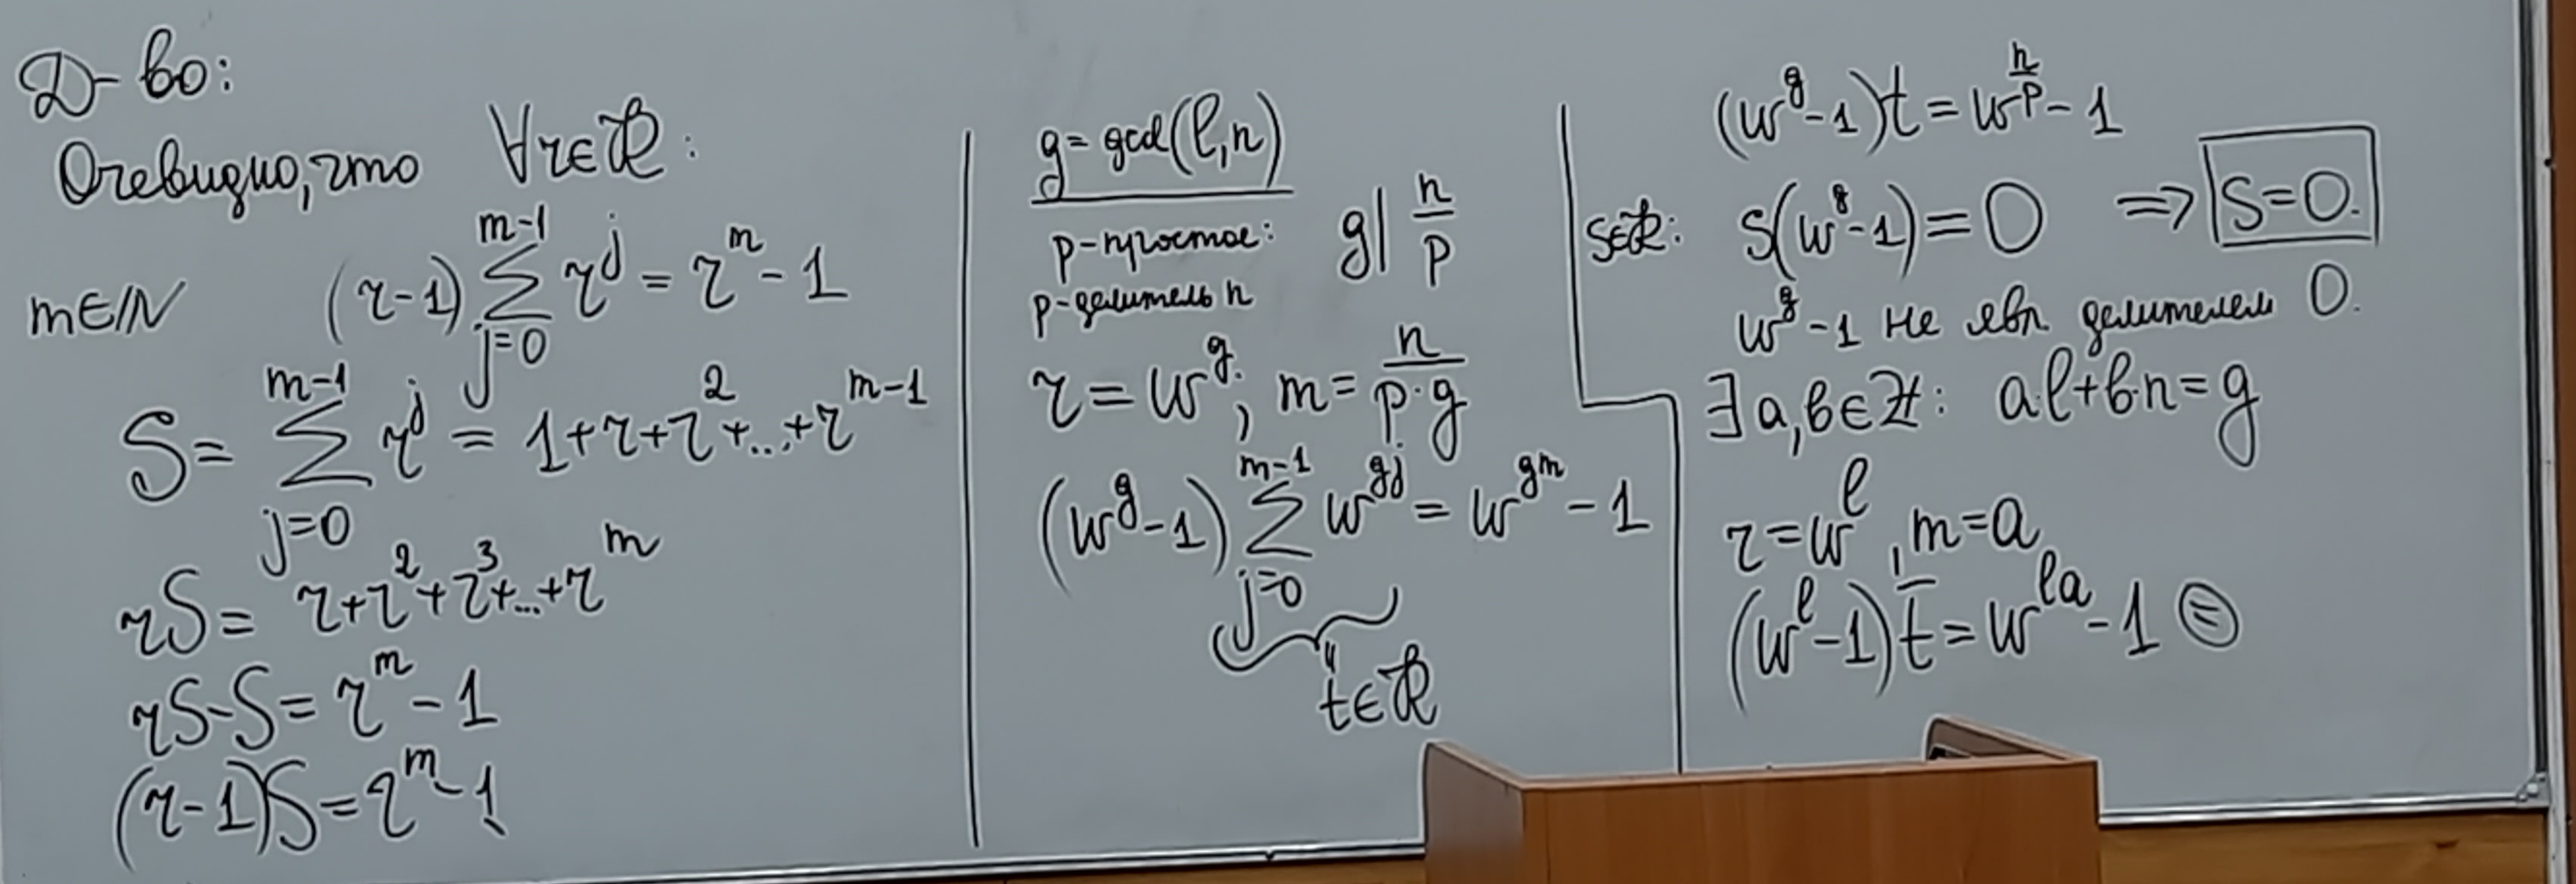 Д-во:
Очевидно, что ∀r∈R:
m∈ℕ (r-1) ∑_{j=0}^{m-1} r^j = r^m - 1
S = ∑_{j=0}^{m-1} r^j = 1+r+r^2+...+r^{m-1}
rS = r+r^2+r^3+...+r^m
rS-S = r^m - 1
(r-1)S = r^m - 1
g = gcd(l,n)
p-простое: g | n/p
p-делитель n
r = w^g, m = n/(p·g)
(w^g - 1) ∑_{j=0}^{m-1} w^{gj} = w^{gm} - 1
t∈R
(w^g - 1)t = w^{n/p} - 1
S∈R: S(w^g - 1) = 0 ⇒ S=0.
w^g - 1 не явл. делителем 0.
∃ a,b∈ℤ: a·l+b·n=g
r = w^l, m=a
(w^l - 1) t̄ = w^{la} - 1 =